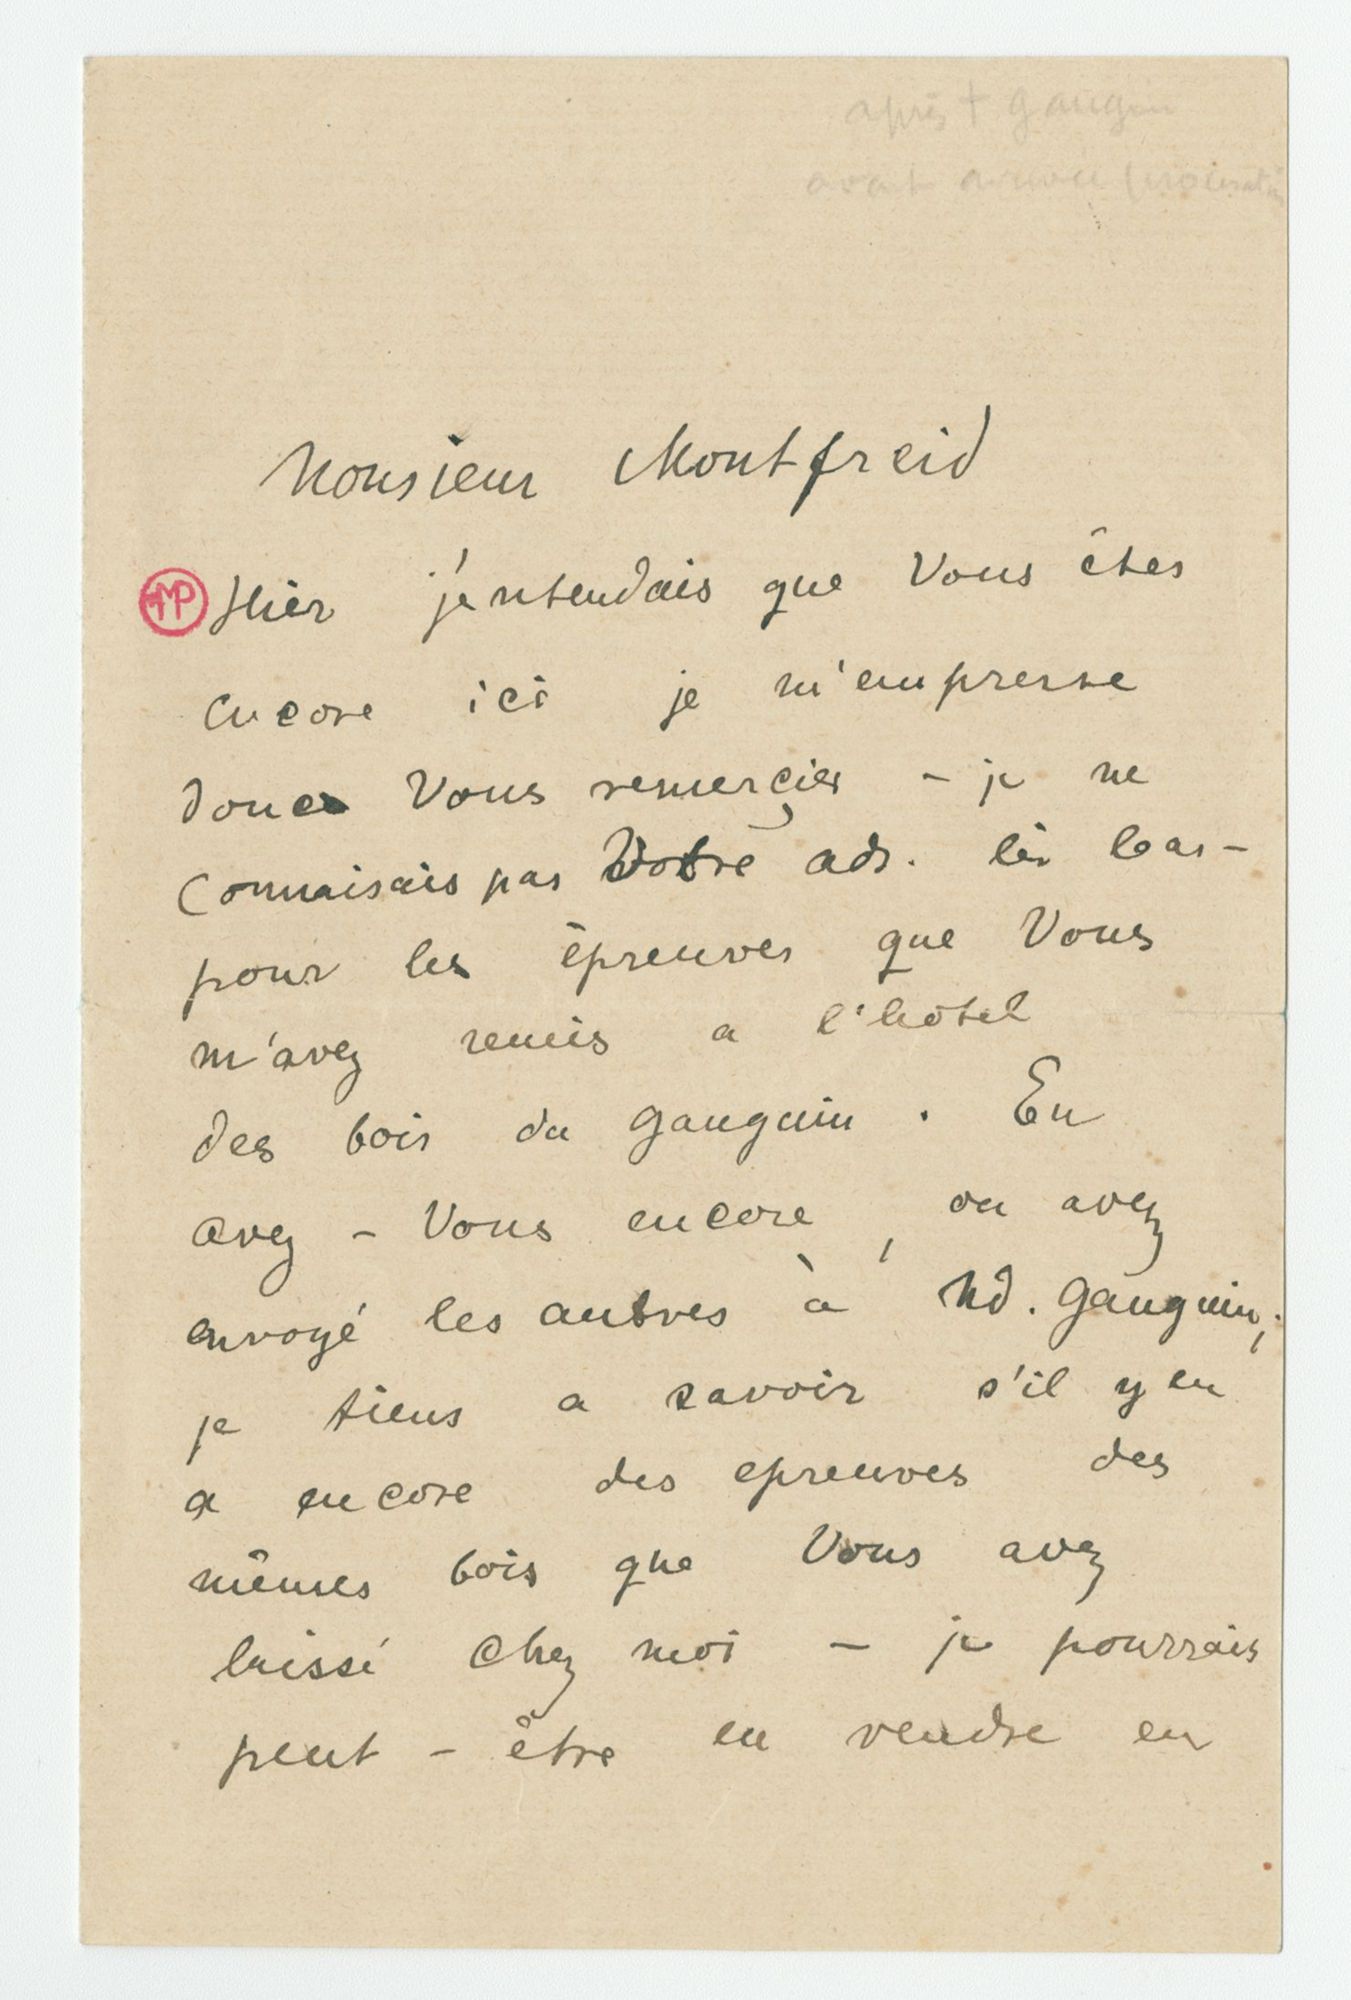 après + gauguin
avant arrivée
Monsieur Montfreid
MP
Hier j'entendais que Vous êtes
encore ici je m'empresse
donc Vous remerçier – je ne
connaisais pas Votre adr. là bas –
pour les épreuves que Vous
m'avez remis a l'hôtel
des bois du gauguin. En
avez – Vous encore, ou avez
envoyé les autres à Md. gauguin;
je tiens a savoir s'il y en
a encore des epreuves des
mêmes bois que Vous avez
laissé chez moi – je pourrais
peut – être en vendre en